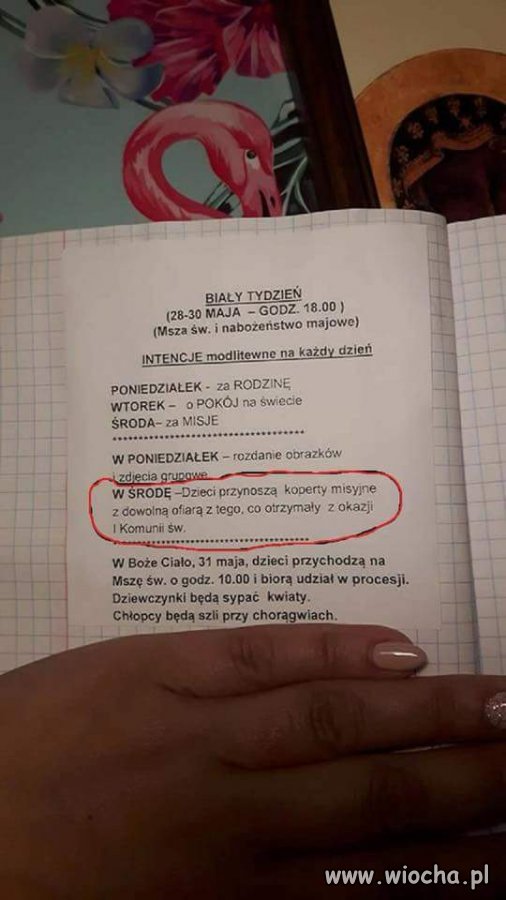 BIAŁY TYDZIEŃ
(28-30 MAJA – GODZ. 18.00 )
(Msza św. i nabożeństwo majowe)
INTENCJE modlitewne na każdy dzień
PONIEDZIAŁEK - za RODZINĘ
WTOREK – o POKÓJ na świecie
ŚRODA– za MISJE
************************************
W PONIEDZIAŁEK – rozdanie obrazków
i zdjęcia grupowe
W ŚRODĘ –Dzieci przynoszą koperty misyjne
z dowolną ofiarą z tego, co otrzymały z okazji
I Komunii św.
************************************
W Boże Ciało, 31 maja, dzieci przychodzą na
Mszę św. o godz. 10.00 i biorą udział w procesji.
Dziewczynki będą sypać kwiaty.
Chłopcy będą szli przy chorągwiach.
www.wiocha.pl